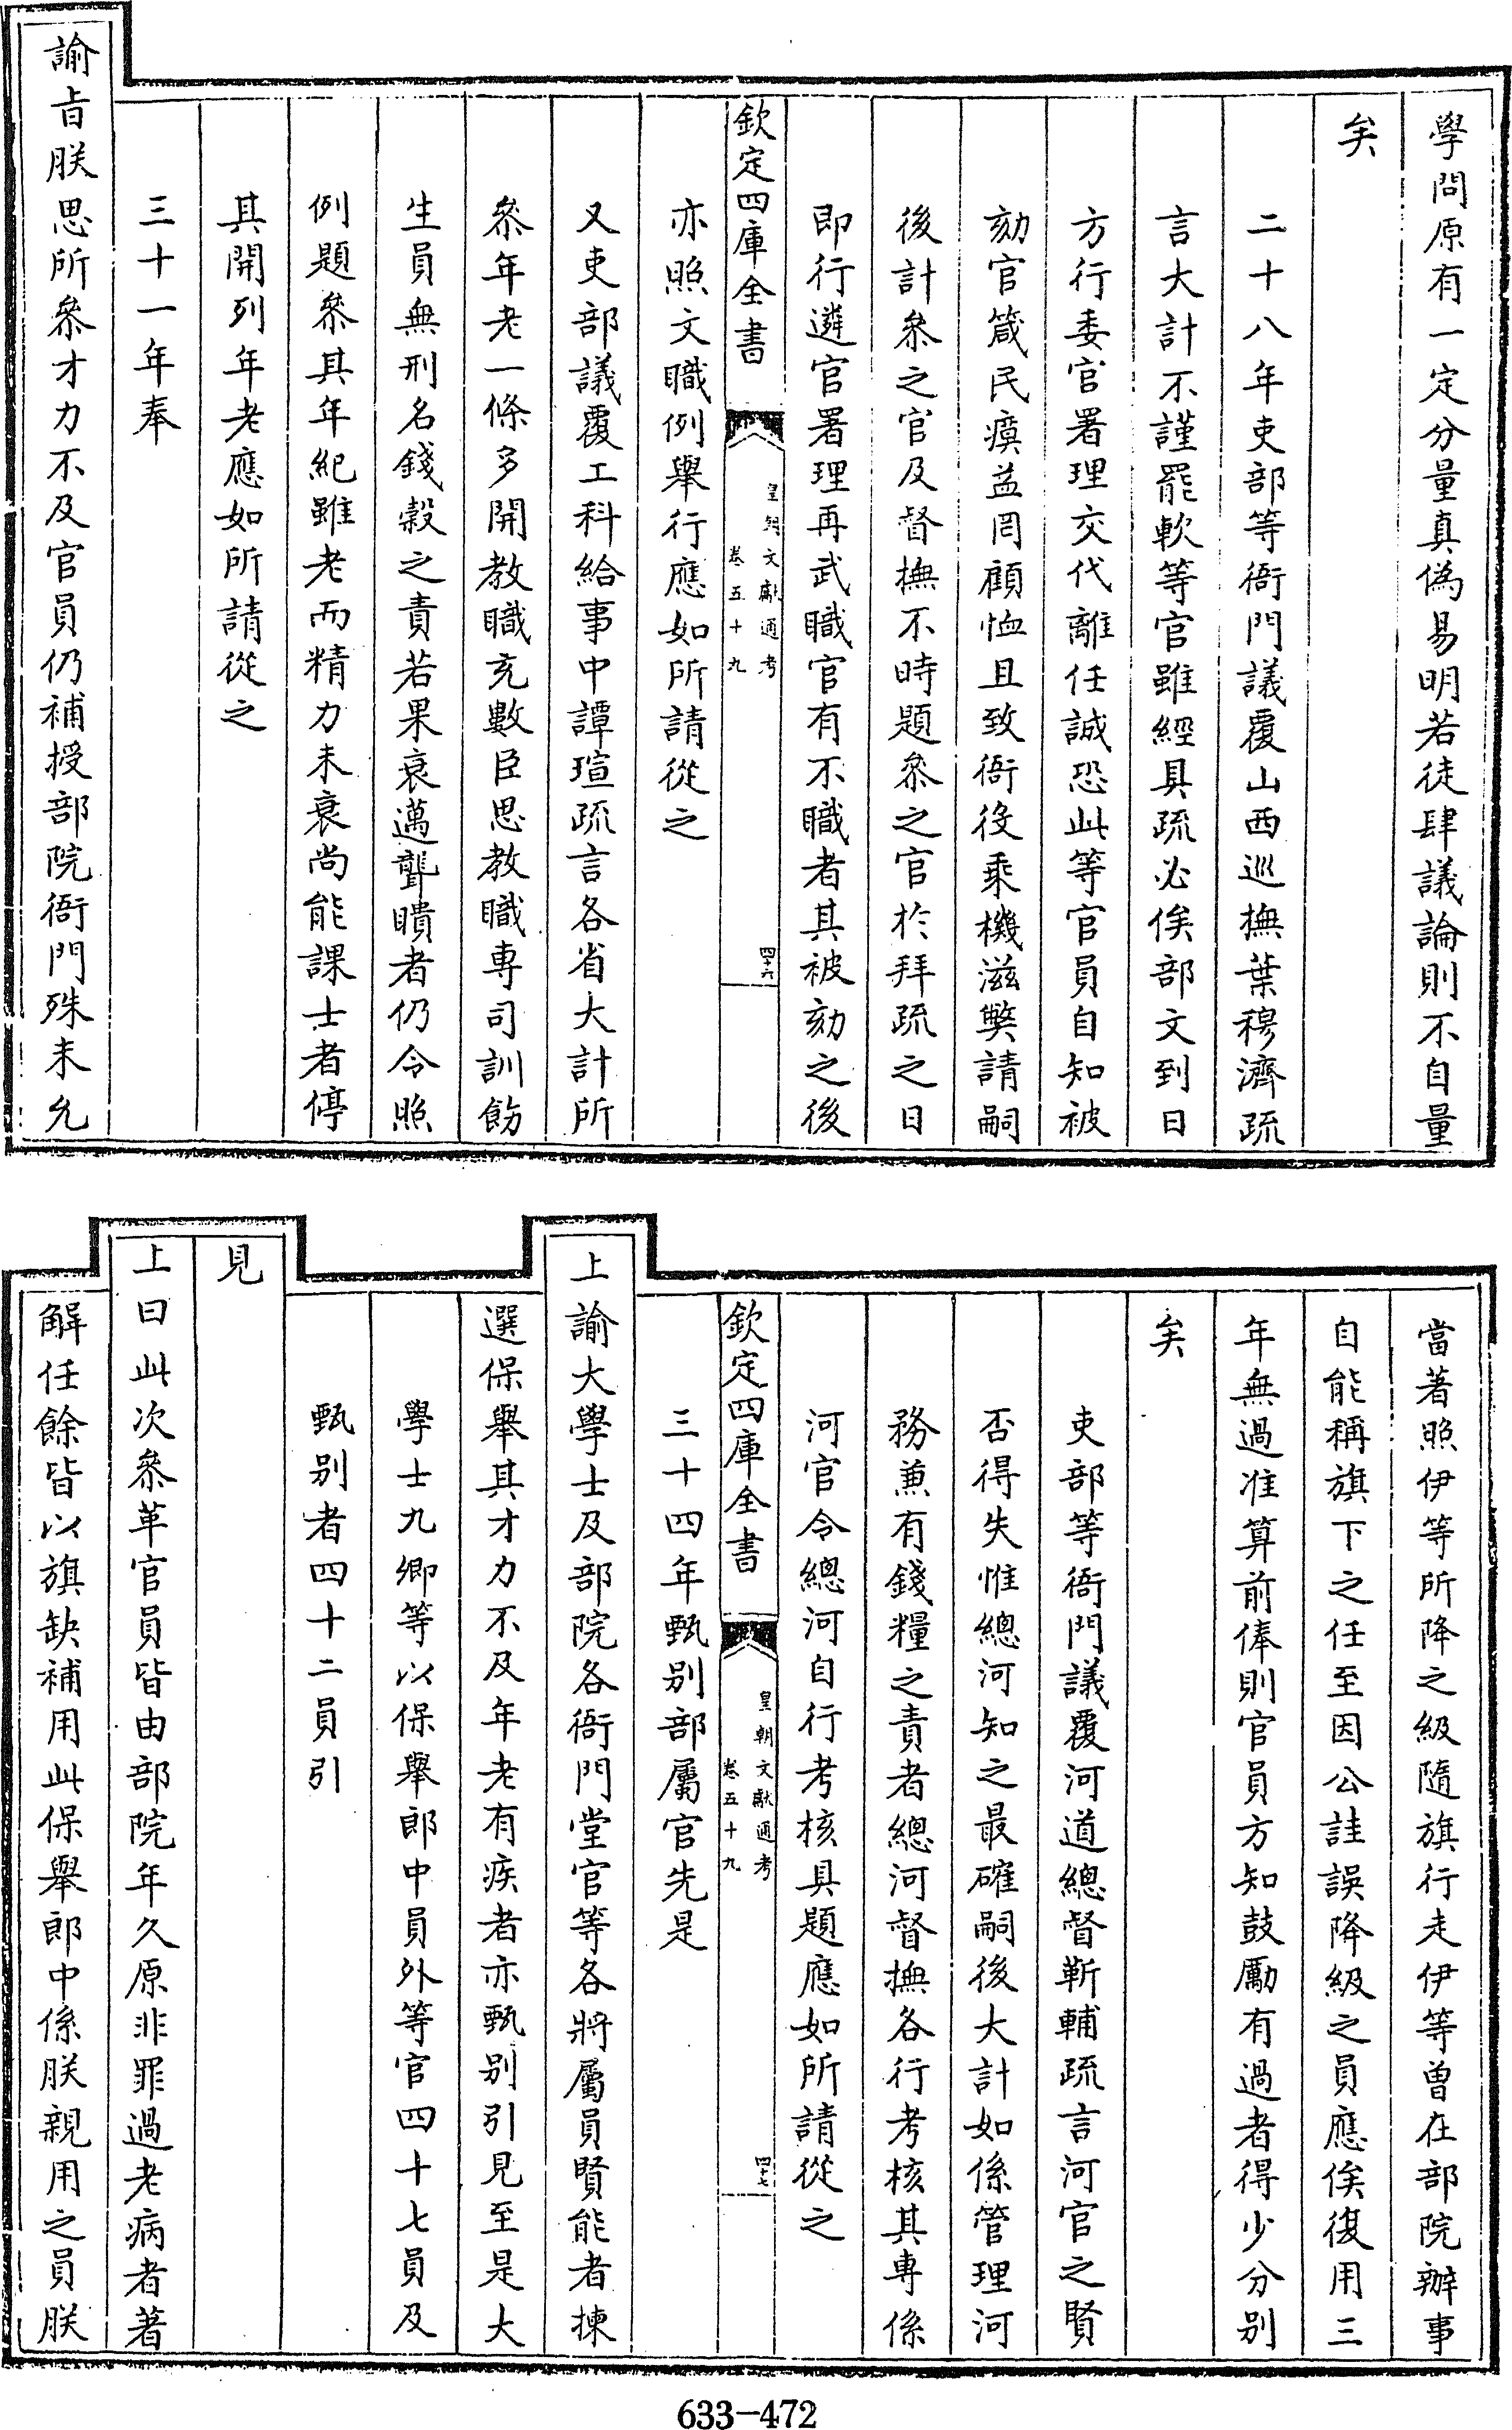 學問原有一定分量真偽易明若徒肆議論則不自量
矣
二十八年吏部等衙門議覆山西巡撫葉穆濟疏
言大計不謹罷軟等官雖經具疏必俟部文到日
方行委官署理交代離任誠恐此等官員自知被
劾官箴民瘼益罔顧恤且致衙役乘機滋弊請嗣
後計叅之官及督撫不時題叅之官於拜疏之日
即行遴官署理再武職官有不職者其被劾之後
欽定四庫全書
皇朝文獻通考
卷五十九
四十六
亦照文職例舉行應如所請從之
又吏部議覆工科給事中譚瑄疏言各省大計所
叅年老一條多開教職充數臣思教職專司訓飭
生員無刑名錢糓之責若果衰邁聾瞶者仍令照
例題叅其年紀雖老而精力未衰尚能課士者停
其開列年老應如所請從之
三十一年奉
諭旨朕思所叅才力不及官員仍補授部院衙門殊未允
當著照伊等所降之級隨旗行走伊等曾在部院辦事
自能稱旗下之任至因公註誤降級之員應俟復用三
年無過准算前俸則官員方知鼓勵有過者得少分别
矣
吏部等衙門議覆河道總督靳輔疏言河官之賢
否得失惟總河知之最確嗣後大計如係管理河
務兼有錢糧之責者總河督撫各行考核其專係
河官令總河自行考核具題應如所請從之
欽定四庫全書
皇朝文獻通考
卷五十九
四十七
三十四年甄别部屬官先是
上諭大學士及部院各衙門堂官等各將屬員賢能者揀
選保舉其才力不及年老有疾者亦甄别引見至是大
學士九卿等以保舉郎中員外等官四十七員及
甄别者四十二員引
見
上曰此次叅革官員皆由部院年久原非罪過老病者著
解任餘皆以旗缺補用此保舉郎中係朕親用之員朕
633-472